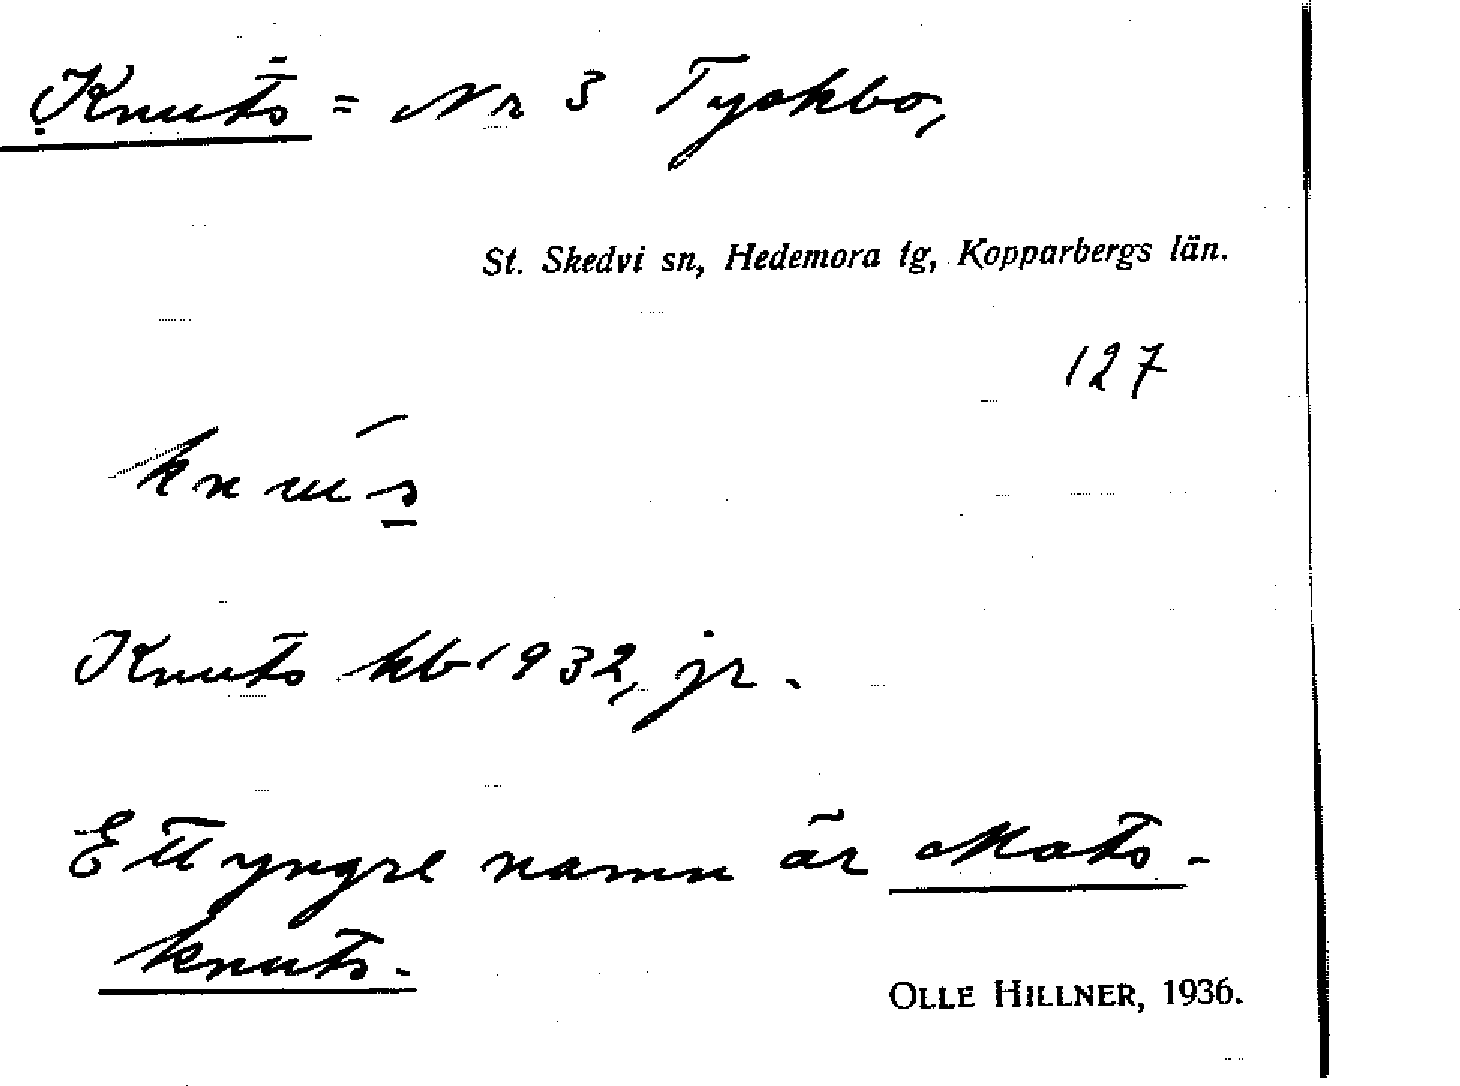 Knuts = Nr 3 Tyskbo,
St. Skedvi sn, Hedemora tg, Kopparbergs län.
127
Knuts kb 1932, jr.
Ett yngre namn är Mats-
knuts.
OLLE HILLNER, 1936.